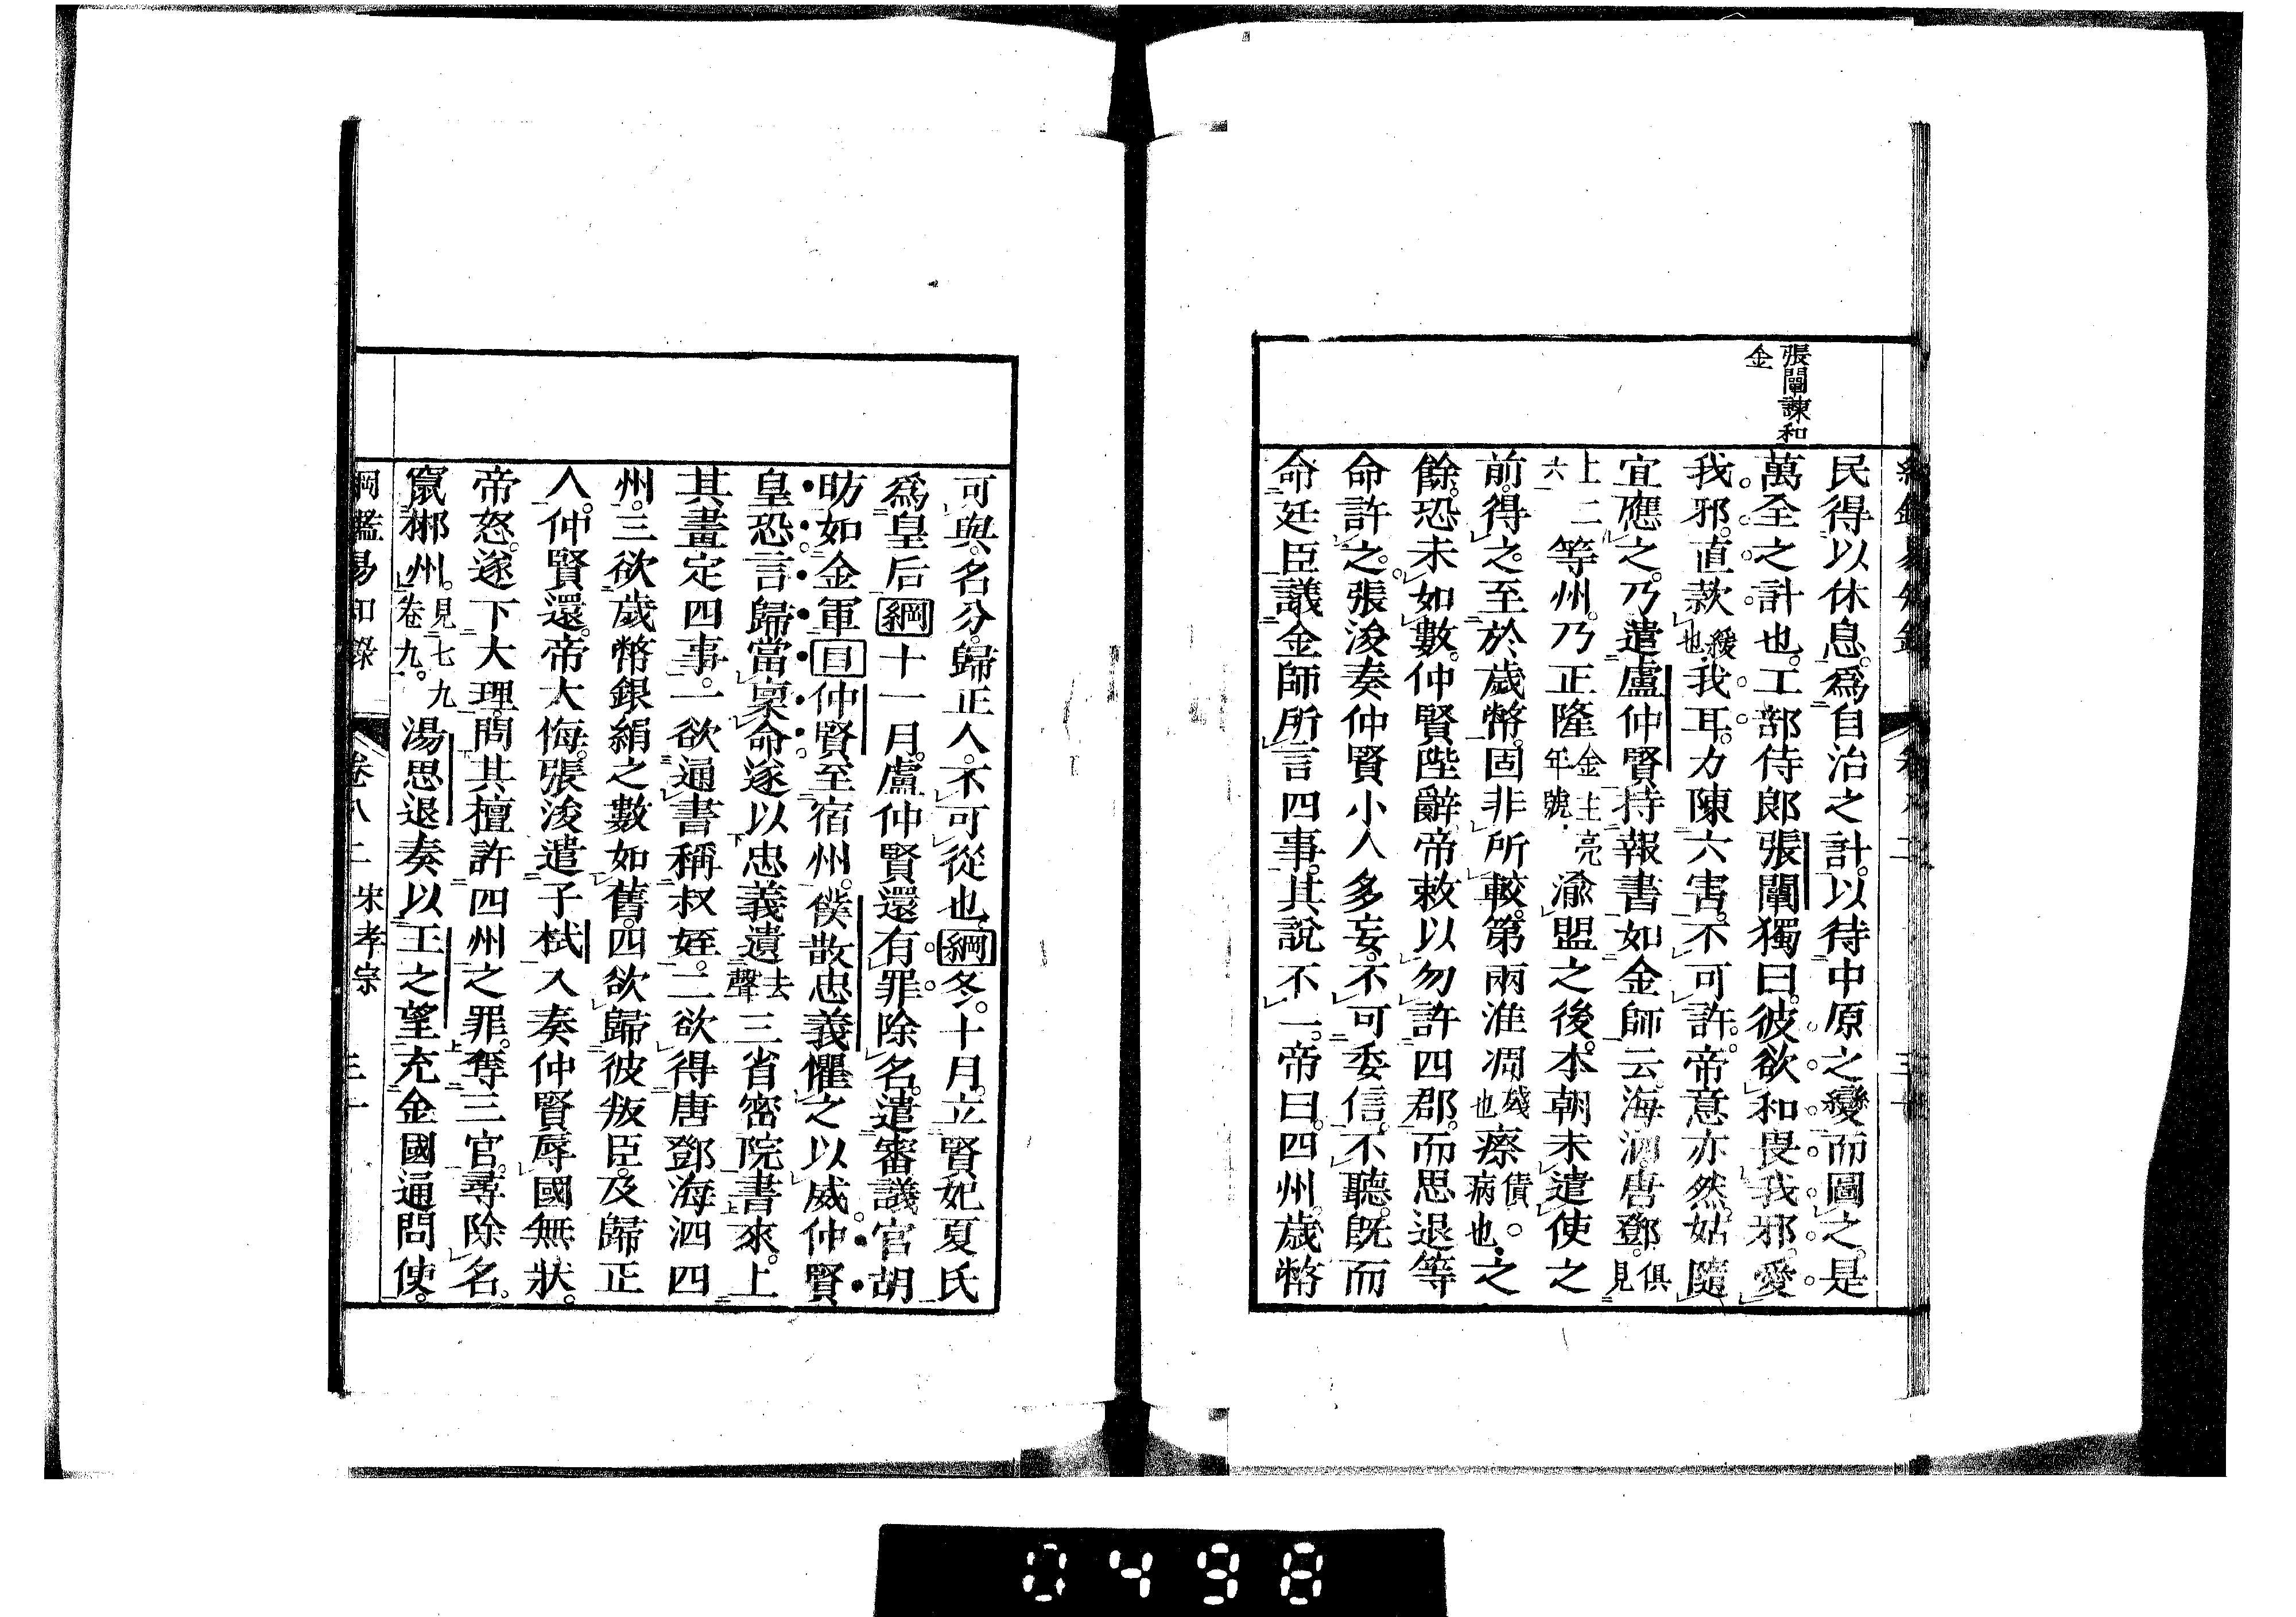 張闡諫和
金
民得以休息。爲自治之計。以待中原之變而圖之。是
萬全之計也。工部侍郎張闡獨曰。彼欲和畏我邪。愛
我邪。直款緩也我耳。力陳六害。不可許。帝意亦然。姑隨
宜應之。乃遣盧仲賢持報書如金師云。海泗唐鄧。俱見
上二六等州。乃正隆金主亮年號渝盟之後。本朝未遣使之
前。得之。至於歲幣。固非所較。第兩淮凋殘也瘵債。病也。之
餘。恐未如數。仲賢陛辭。帝敕以勿許四郡。而思退等
命許之。張浚奏仲賢小人多妄。不可委信。不聽。旣而
命廷臣議金師所言四事。其說不一。帝曰。四州。歲幣
可與。名分。歸正人。不可從也。綱冬。十月。立賢妃夏氏
爲皇后綱十一月。盧仲賢還有罪除名。遣審議官胡
昉如金軍目仲賢至宿州。僕散忠義懼之以威。仲賢
皇恐言歸當稟命遂以忠義遺去聲三省密院書來。上
其畫定四事。一欲通書稱叔姪。二欲得唐鄧海泗四
州。三欲歲幣銀絹之數如舊。四欲歸彼叛臣。及歸正
人。仲賢還。帝大悔。張浚遣子栻入奏仲賢辱國無狀。
帝怒。遂下大理。問其擅許四州之罪。奪三官。尋除名。
竄郴州。見七九卷九。湯思退奏以王之望充金國通問使。
綱鑑易知錄 卷八二 宋孝宗
0498